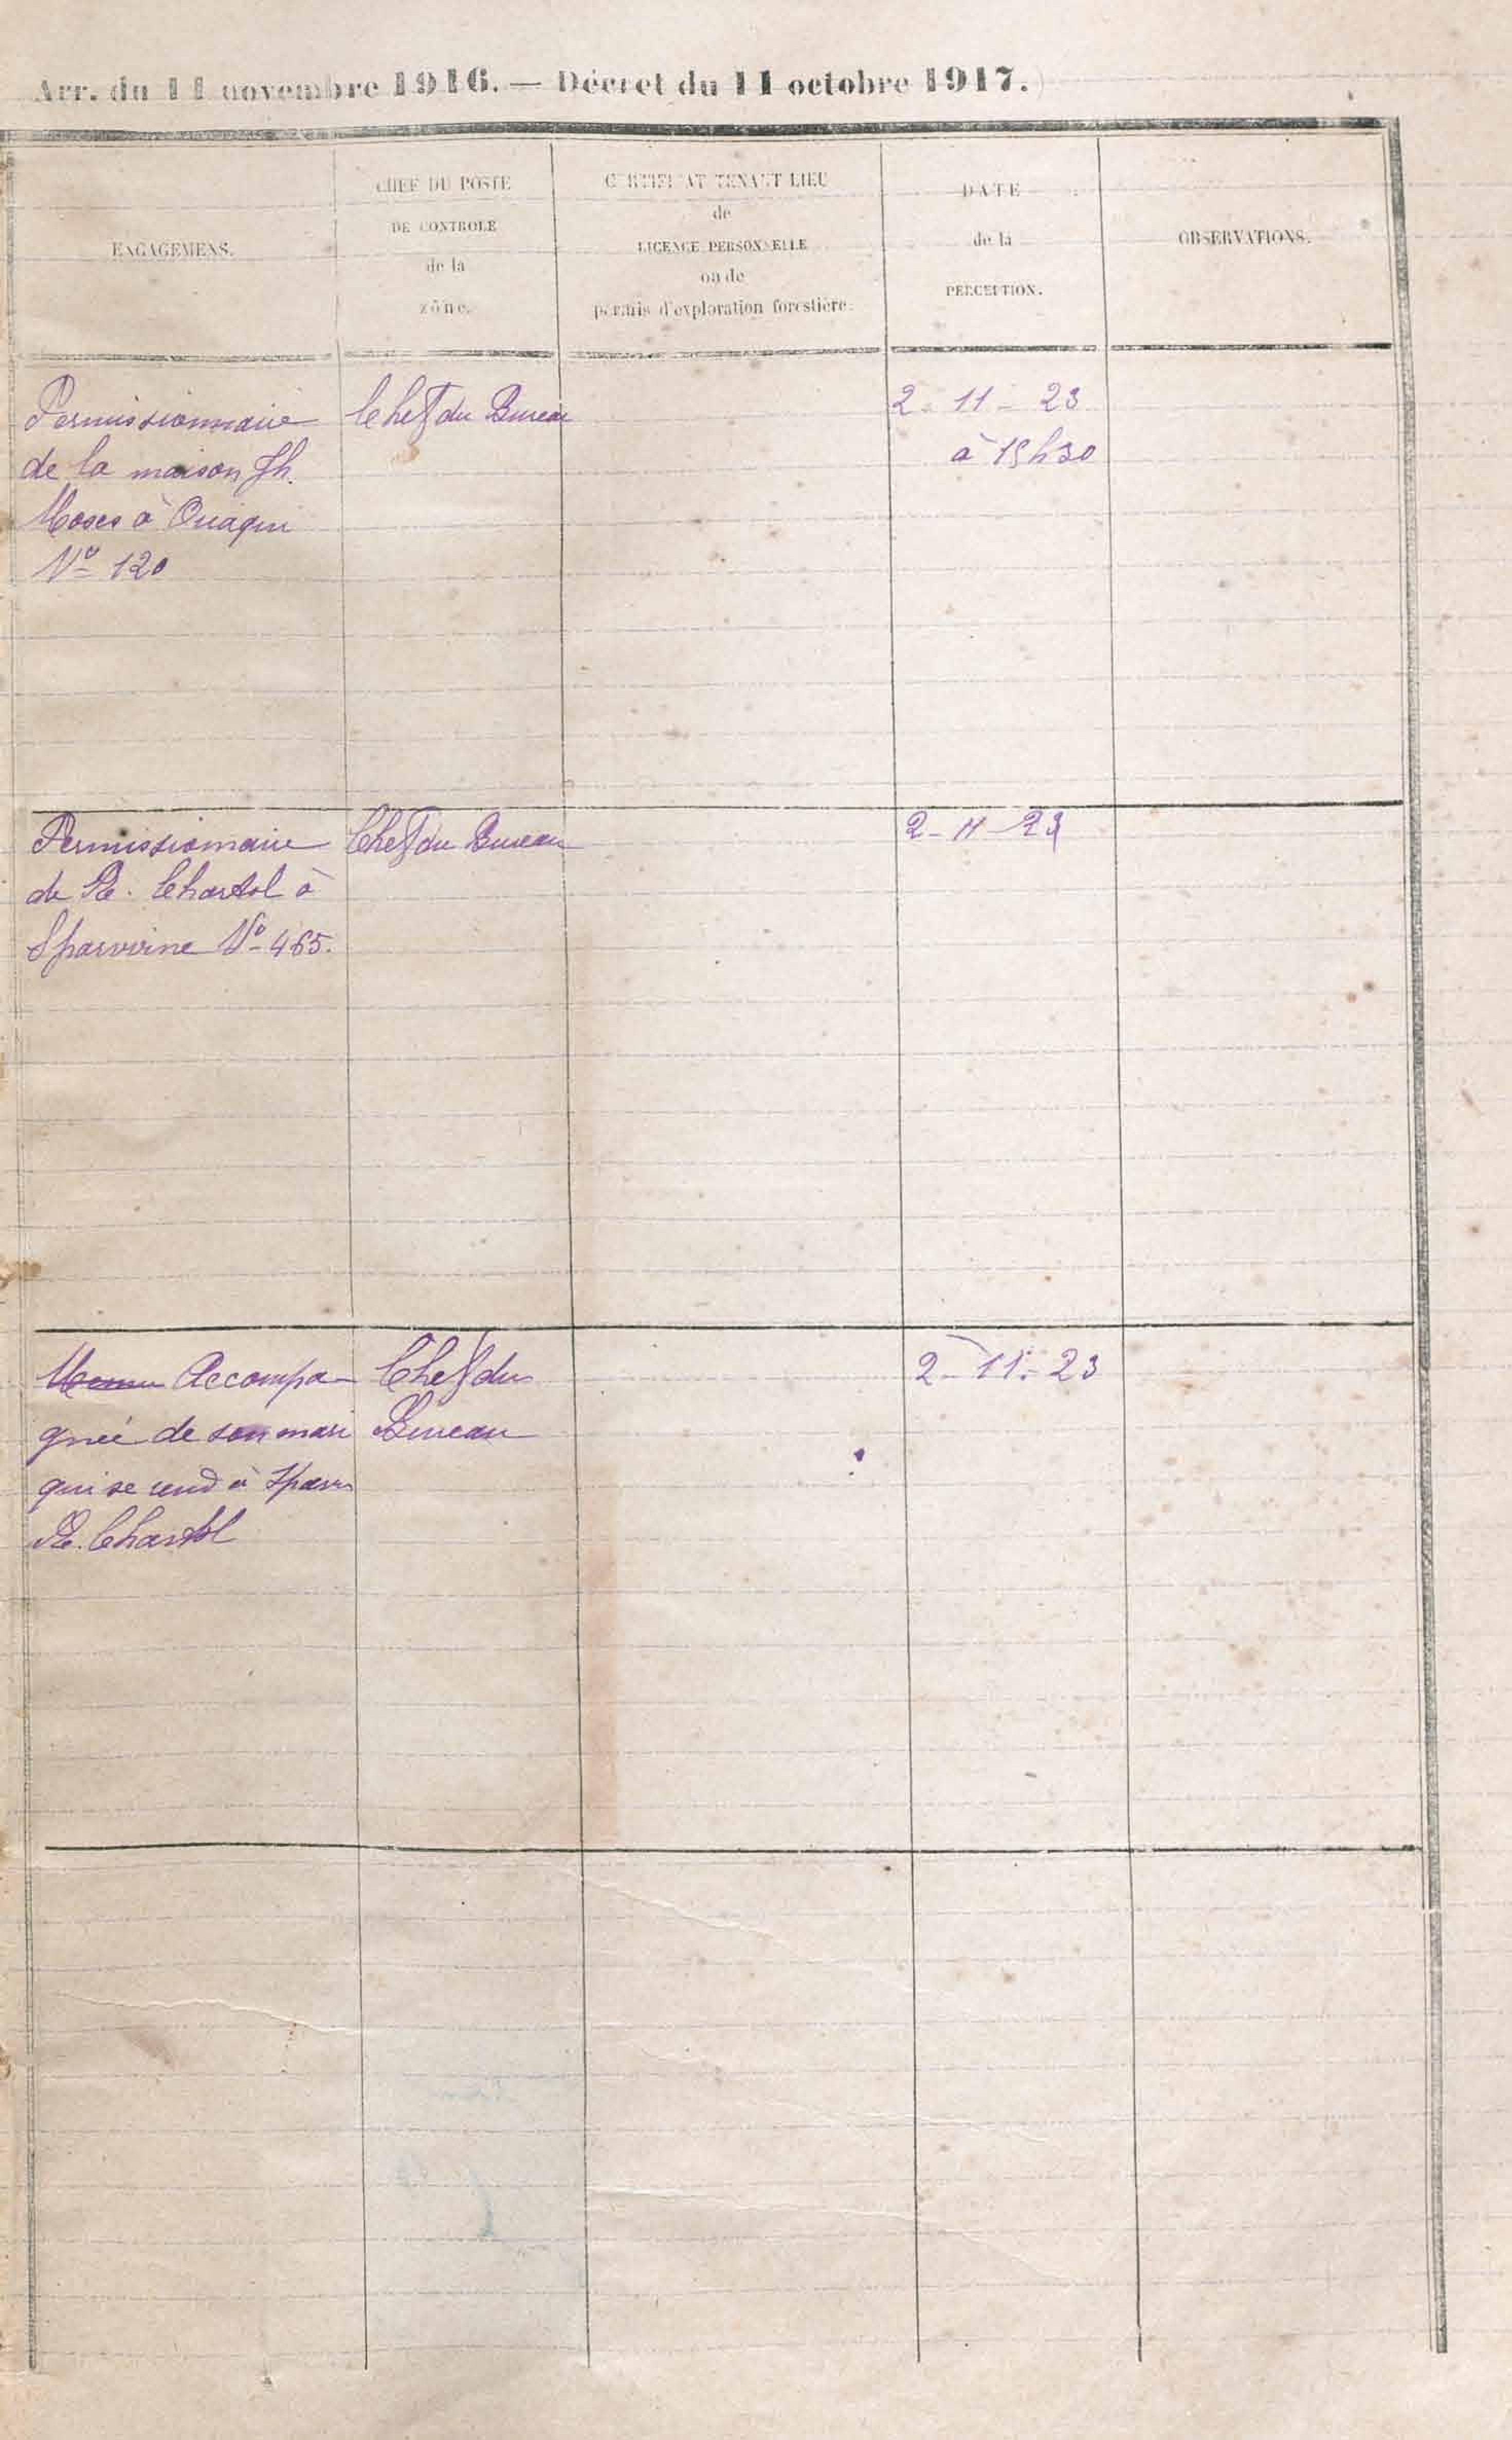 Arr. du 11 novembre 1916. — Décret du 11 octobre 1917.
ENGAGEMENS.
CHEF DU POSTE
DE CONTROLE
de la
zône.
CERTIFICAT TENANT LIEU
de
LICENCE PERSONNELLE
ou de
permis d'exploration forestière.
DATE
de la
PERCEPTION.
OBSERVATIONS.
Permissionnaire
de la maison Jh.
Moses à Ouaqui
No 120
Chef du Bureau
2 - 11 - 23
à 15h30
Permissionnaire
de R. Chartol à
Sparwine No 465.
Chef du Bureau
2 - 11 - 23
Accompa-
gnée de son mari
qui se rend à Sparw
R. Chartol
Chef du
Bureau
2 - 11 - 23